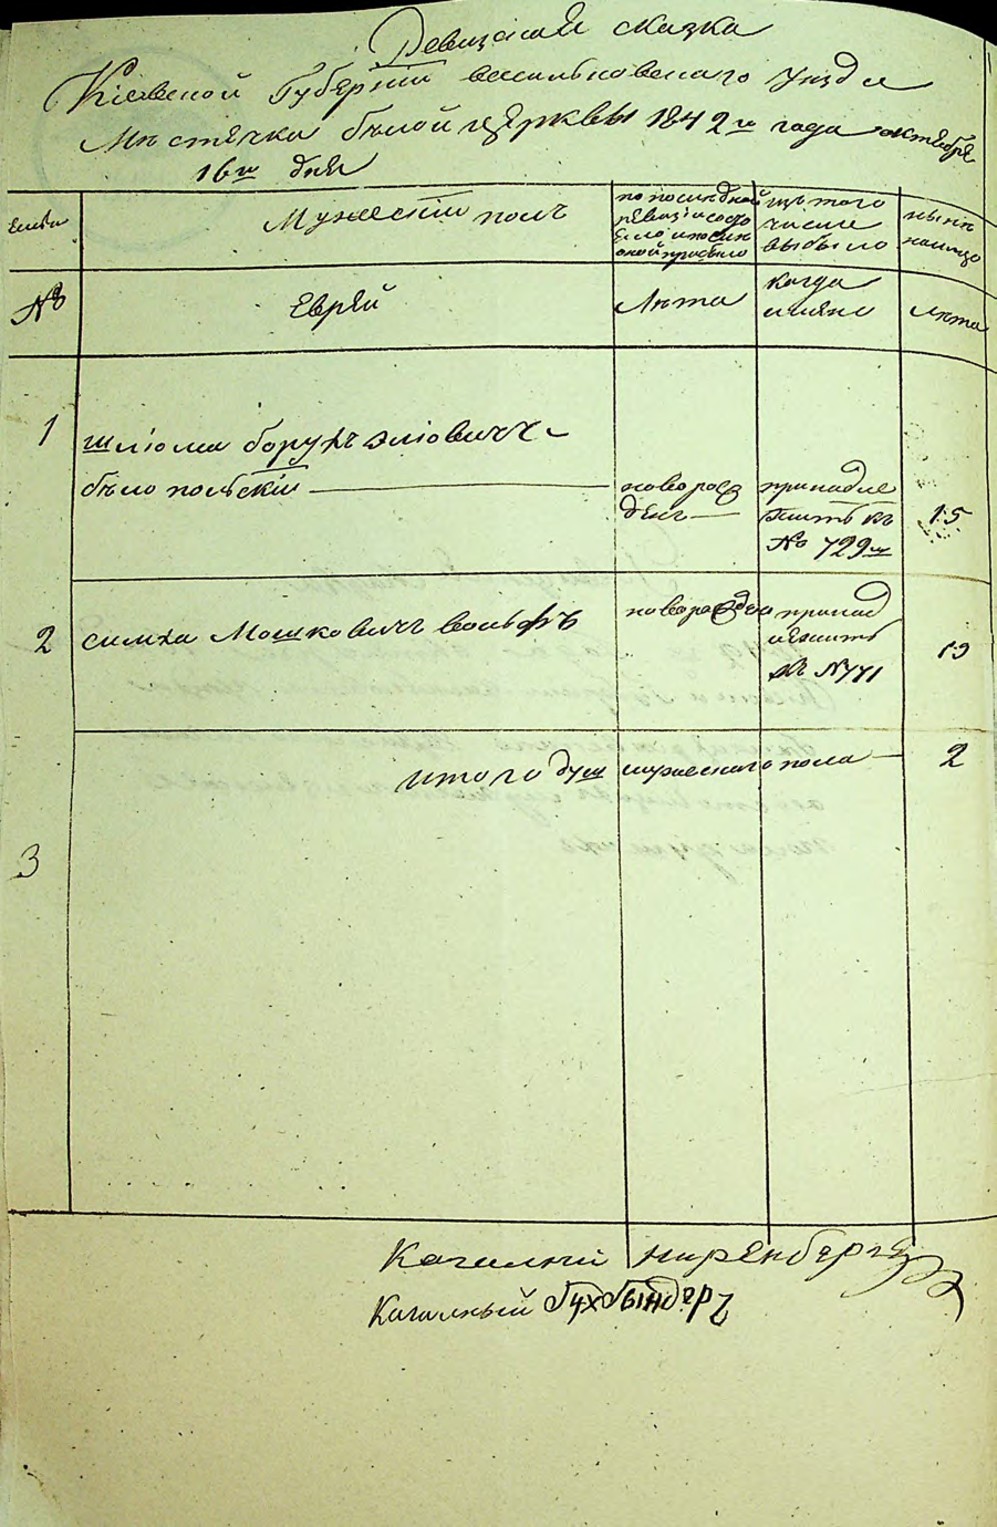 Ревизская сказка
Кіевской Губерніи васильковского уезда
Местечка белой церквы 1842го года октебре
16го дня
Мужескій полъ
по последней
ревизіи состо
яло и после
оной прибыло
изъ того
числа
выбыло
ныне
налицо
№
Еврей
Лета
когда
имяно
лета
1
шліома борухъ эліовичъ
белопольскій
новорож
денъ
принадле
житъ къ
№ 729му
15
2
симха Мошковичъ вольфъ
новорожден
принад
лежитъ
къ № 771
19
итого душ мужеского пола
2
3
Кагалный Ниренбергъ
Кагалный